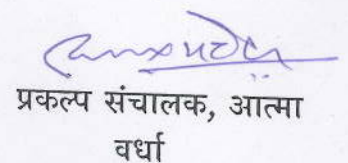 प्रकल्प संचालक, आत्मा
वर्धा